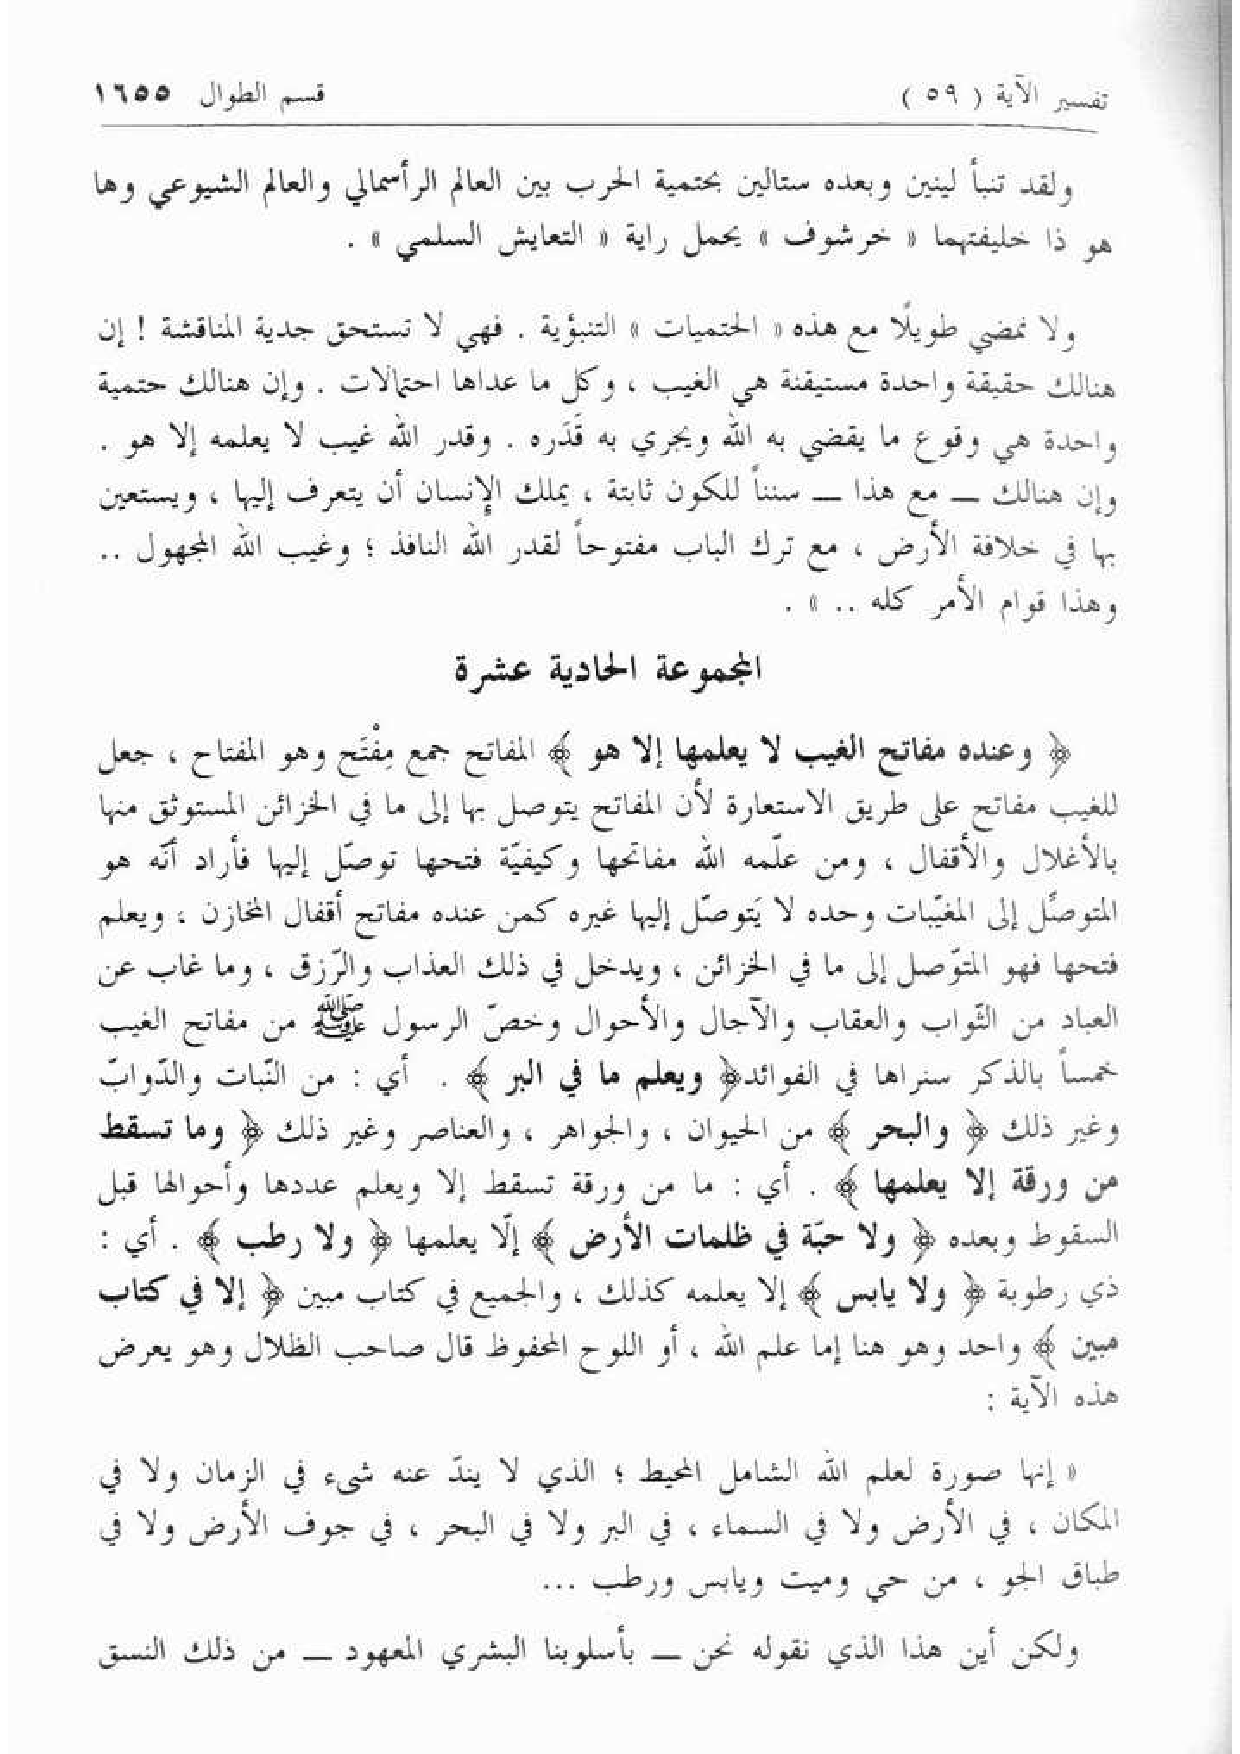 تفسير الآية ( ٥٩ )
قسم الطوال ١٦٥٥
ولقد تنبأ لينين وبعده ستالين بحتمية الحرب بين العالم الرأسمالي والعالم الشيوعي وها
هو ذا خليفتهما « خرشوف » يحمل راية « التعايش السلمي » .
ولا نمضي طويلًا مع هذه « الحتميات » التنبؤية . فهي لا تستحق جدية المناقشة ! إن
هنالك حقيقة واحدة مستيقنة هي الغيب ، وكل ما عداها احتمالات . وإن هنالك حتمية
واحدة هي وقوع ما يقضي به الله ويجري به قَدَره . وقدر الله غيب لا يعلمه إلا هو .
وإن هنالك ــ مع هذا ــ سنناً للكون ثابتة ، يملك الإنسان أن يتعرف إليها ، ويستعين
بها في خلافة الأرض ، مع ترك الباب مفتوحاً لقدر الله النافذ ؛ وغيب الله المجهول ..
وهذا قوام الأمر كله .. » .
المجموعة الحادية عشرة
﴿ وعنده مفاتح الغيب لا يعلمها إلا هو ﴾ المفاتح جمع مِفْتَح وهو المفتاح ، جعل
للغيب مفاتح على طريق الاستعارة لأن المفاتح يتوصل بها إلى ما في الخزائن المستوثق منها
بالأغلال والأقفال ، ومن علّمه الله مفاتحها وكيفيّة فتحها توصّل إليها فأراد أنّه هو
المتوصِّل إلى المغيّبات وحده لا يَتوصّل إليها غيره كمن عنده مفاتح أقفال المخازن ؛ ويعلم
فتحها فهو المتوّصل إلى ما في الخزائن ، ويدخل في ذلك العذاب والرّزق ، وما غاب عن
العباد من الثّواب والعقاب والآجال والأحوال وخصّ الرسول ﷺ من مفاتح الغيب
خمساً بالذكر سنراها في الفوائد ﴿ ويعلم ما في البر ﴾ . أي : من النّبات والدّوابّ
وغير ذلك ﴿ والبحر ﴾ من الحيوان ، والجواهر ، والعناصر وغير ذلك ﴿ وما تسقط
من ورقة إلا يعلمها ﴾ . أي : ما من ورقة تسقط إلا ويعلم عددها وأحوالها قبل
السقوط وبعده ﴿ ولا حبّة في ظلمات الأرض ﴾ إلّا يعلمها ﴿ ولا رطب ﴾ . أي :
ذي رطوبة ﴿ ولا يابس ﴾ إلا يعلمه كذلك ، والجميع في كتاب مبين ﴿ إلا في كتاب
مبين ﴾ واحد وهو هنا إما علم الله ، أو اللوح المحفوظ قال صاحب الظلال وهو يعرض
هذه الآية :
« إنها صورة لعلم الله الشامل المحيط ؛ الذي لا يندّ عنه شيء في الزمان ولا في
المكان ، في الأرض ولا في السماء ، في البر ولا في البحر ، في جوف الأرض ولا في
طباق الجو ، من حي وميت ويابس ورطب ...
ولكن أين هذا الذي نقوله نحن ــ بأسلوبنا البشري المعهود ــ من ذلك النسق